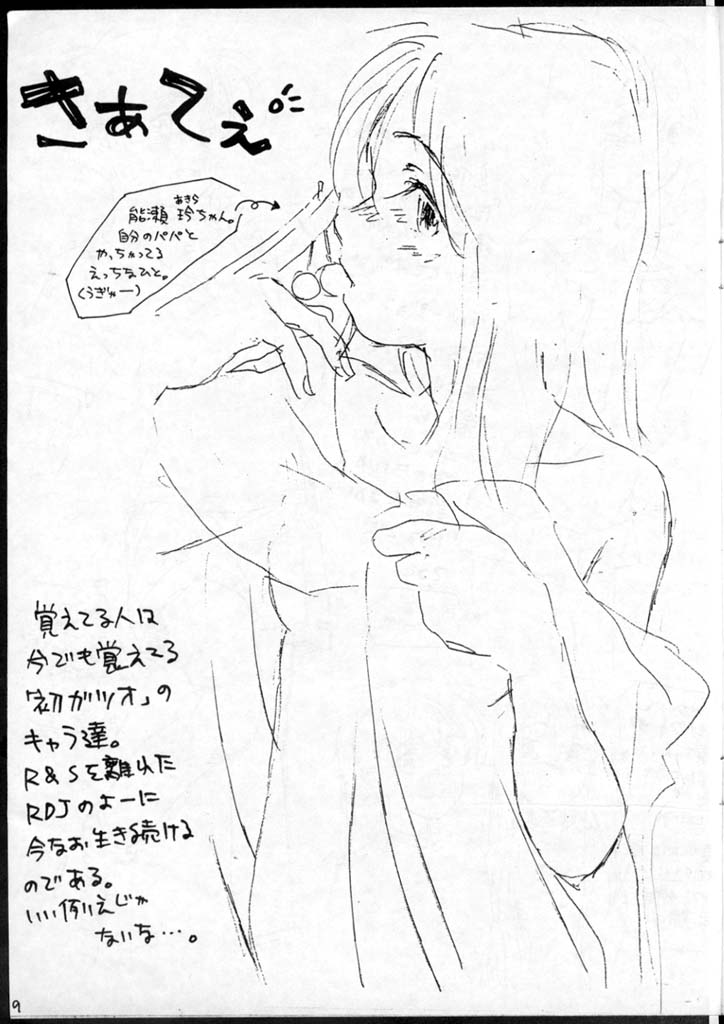 さぁてぇ
あきら
能瀬 玲ちゃん。
自分のパパと
やっちゃってる
えっちなひと。
(うぎゅー)
覚えてる人は
今でも覚えてる
「初ガツオ」の
キャラ達。
R&Sを離れた
RDJのよーに
今なお生き続ける
のである。
いい例えじゃ
ないな…。
9